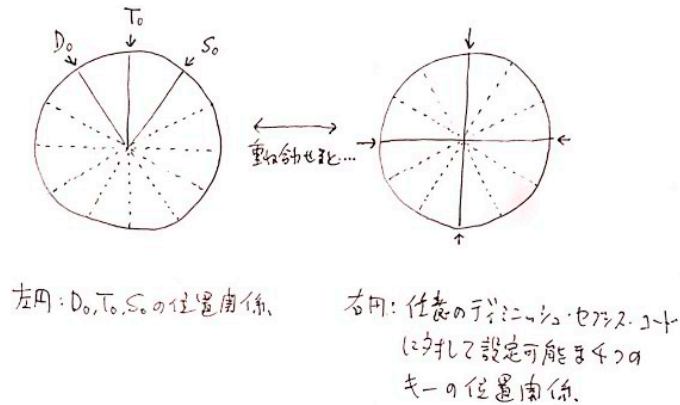 T₀
D₀
S₀
重ね合わせると…
左円：D₀,T₀,S₀の位置関係、
右円：任意のディミニッシュ・セブンス・コード
に対して設定可能な4つの
キーの位置関係、